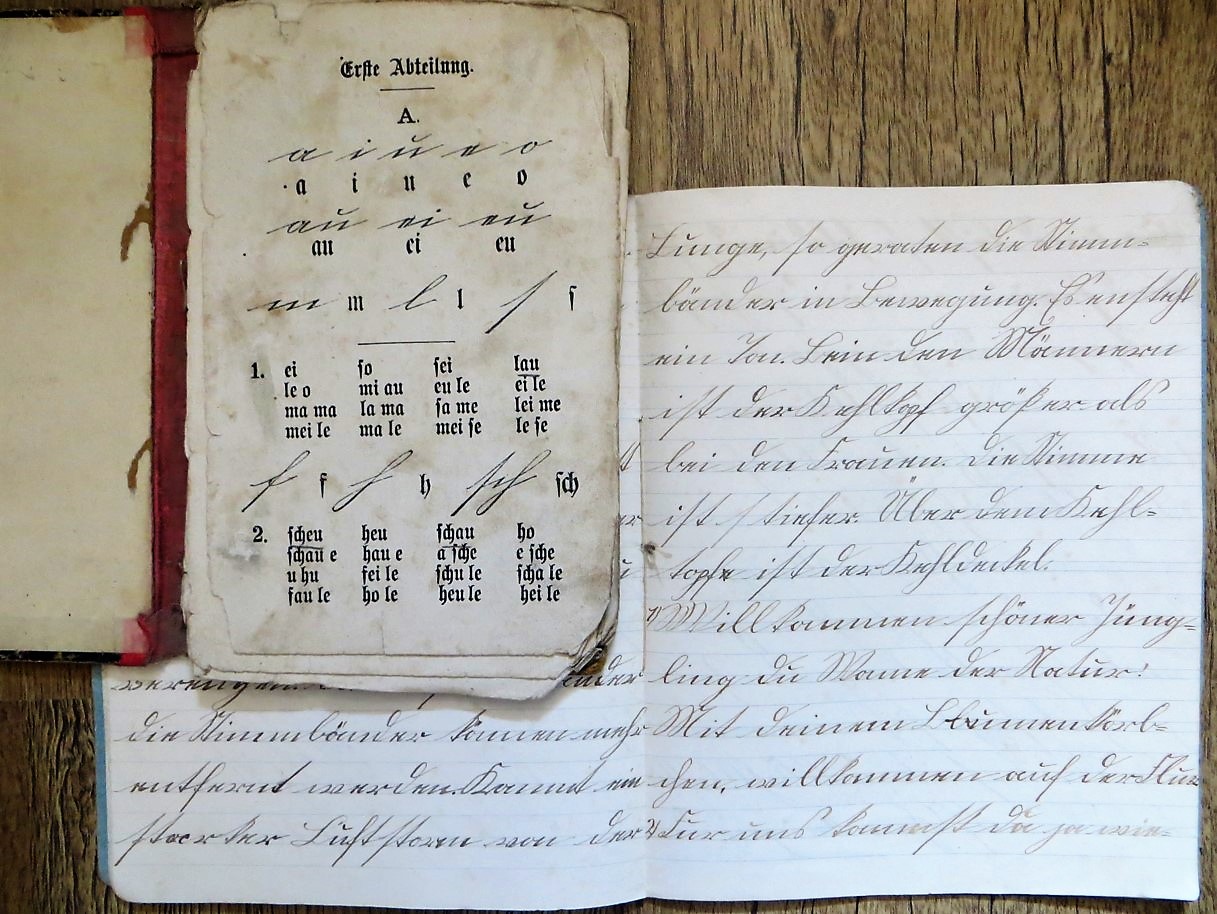 Erste Abteilung.
A.
a i u e o
a i u e o
au ei eu
au ei eu
m m l l s ſ
1. ei ſo ſei lau
le o mi au eu le ei le
ma ma la ma ſa me lei me
mei le ma le mei ſe le ſe
f f h h sch ſch
2. ſcheu heu ſchau ho
ſchau e hau e a ſche e ſche
u hu fei le ſchu le ſcha le
fau le ho le heu le hei le
die Stimmbänder können mehr
entfernt werden. Kommt ein
starker Luftstorm von der
Lunge, so geraten die Stimm-
bänder in Bewegung. Es ensteht
ein Ton. Bein den Männern
ist der Kehlkopf größer als
bei den Frauen. Die Stimme
ist tiefer. Über dem Kehl-
kopfe ist der Kehldeckel.
Willkommen schöner Jüng-
ling du Wonne der Natur!
Mit deinem Blumenkörb-
chen, willkommen auf der Flur
kommst du ja wie-